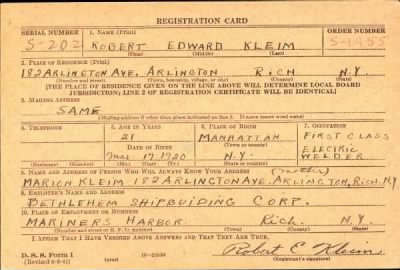 REGISTRATION CARD
SERIAL NUMBER 1. NAME (Print) ORDER NUMBER
S-202 ROBERT EDWARD KLEIM S-1955
(First) (Middle) (Last)
2. PLACE OF RESIDENCE (Print)
182 ARLINGTON AVE. ARLINGTON RICH. N.Y.
(Number and street) (Town, township, village, or city) (County) (State)
[THE PLACE OF RESIDENCE GIVEN ON THE LINE ABOVE WILL DETERMINE LOCAL BOARD
JURISDICTION; LINE 2 OF REGISTRATION CERTIFICATE WILL BE IDENTICAL]
3. MAILING ADDRESS
SAME
[Mailing address if other than place indicated on line 2. If same insert word same]
4. TELEPHONE 5. AGE IN YEARS 6. PLACE OF BIRTH 7. OCCUPATION
21 MANHATTAN FIRST CLASS
DATE OF BIRTH (Town or county) ELECTRIC
Mar. 17, 1920 N.Y. WELDER
(Exchange) (Number) (Mo.) (Day) (Yr.) (State or country)
8. NAME AND ADDRESS OF PERSON WHO WILL ALWAYS KNOW YOUR ADDRESS (mother)
MARION KLEIM 182 ARLINGTON AVE. ARLINGTON, RICH. N.Y.
9. EMPLOYER'S NAME AND ADDRESS
BETHLEHEM SHIPBUIDING CORP.
10. PLACE OF EMPLOYMENT OR BUSINESS
MARINERS HARBOR RICH. N.Y.
(Number and street or R. F. D. number) (Town) (County) (State)
I AFFIRM THAT I HAVE VERIFIED ABOVE ANSWERS AND THAT THEY ARE TRUE.
D. S. S. Form 1
(Revised 6-9-41) (over) Robert E. Kleim